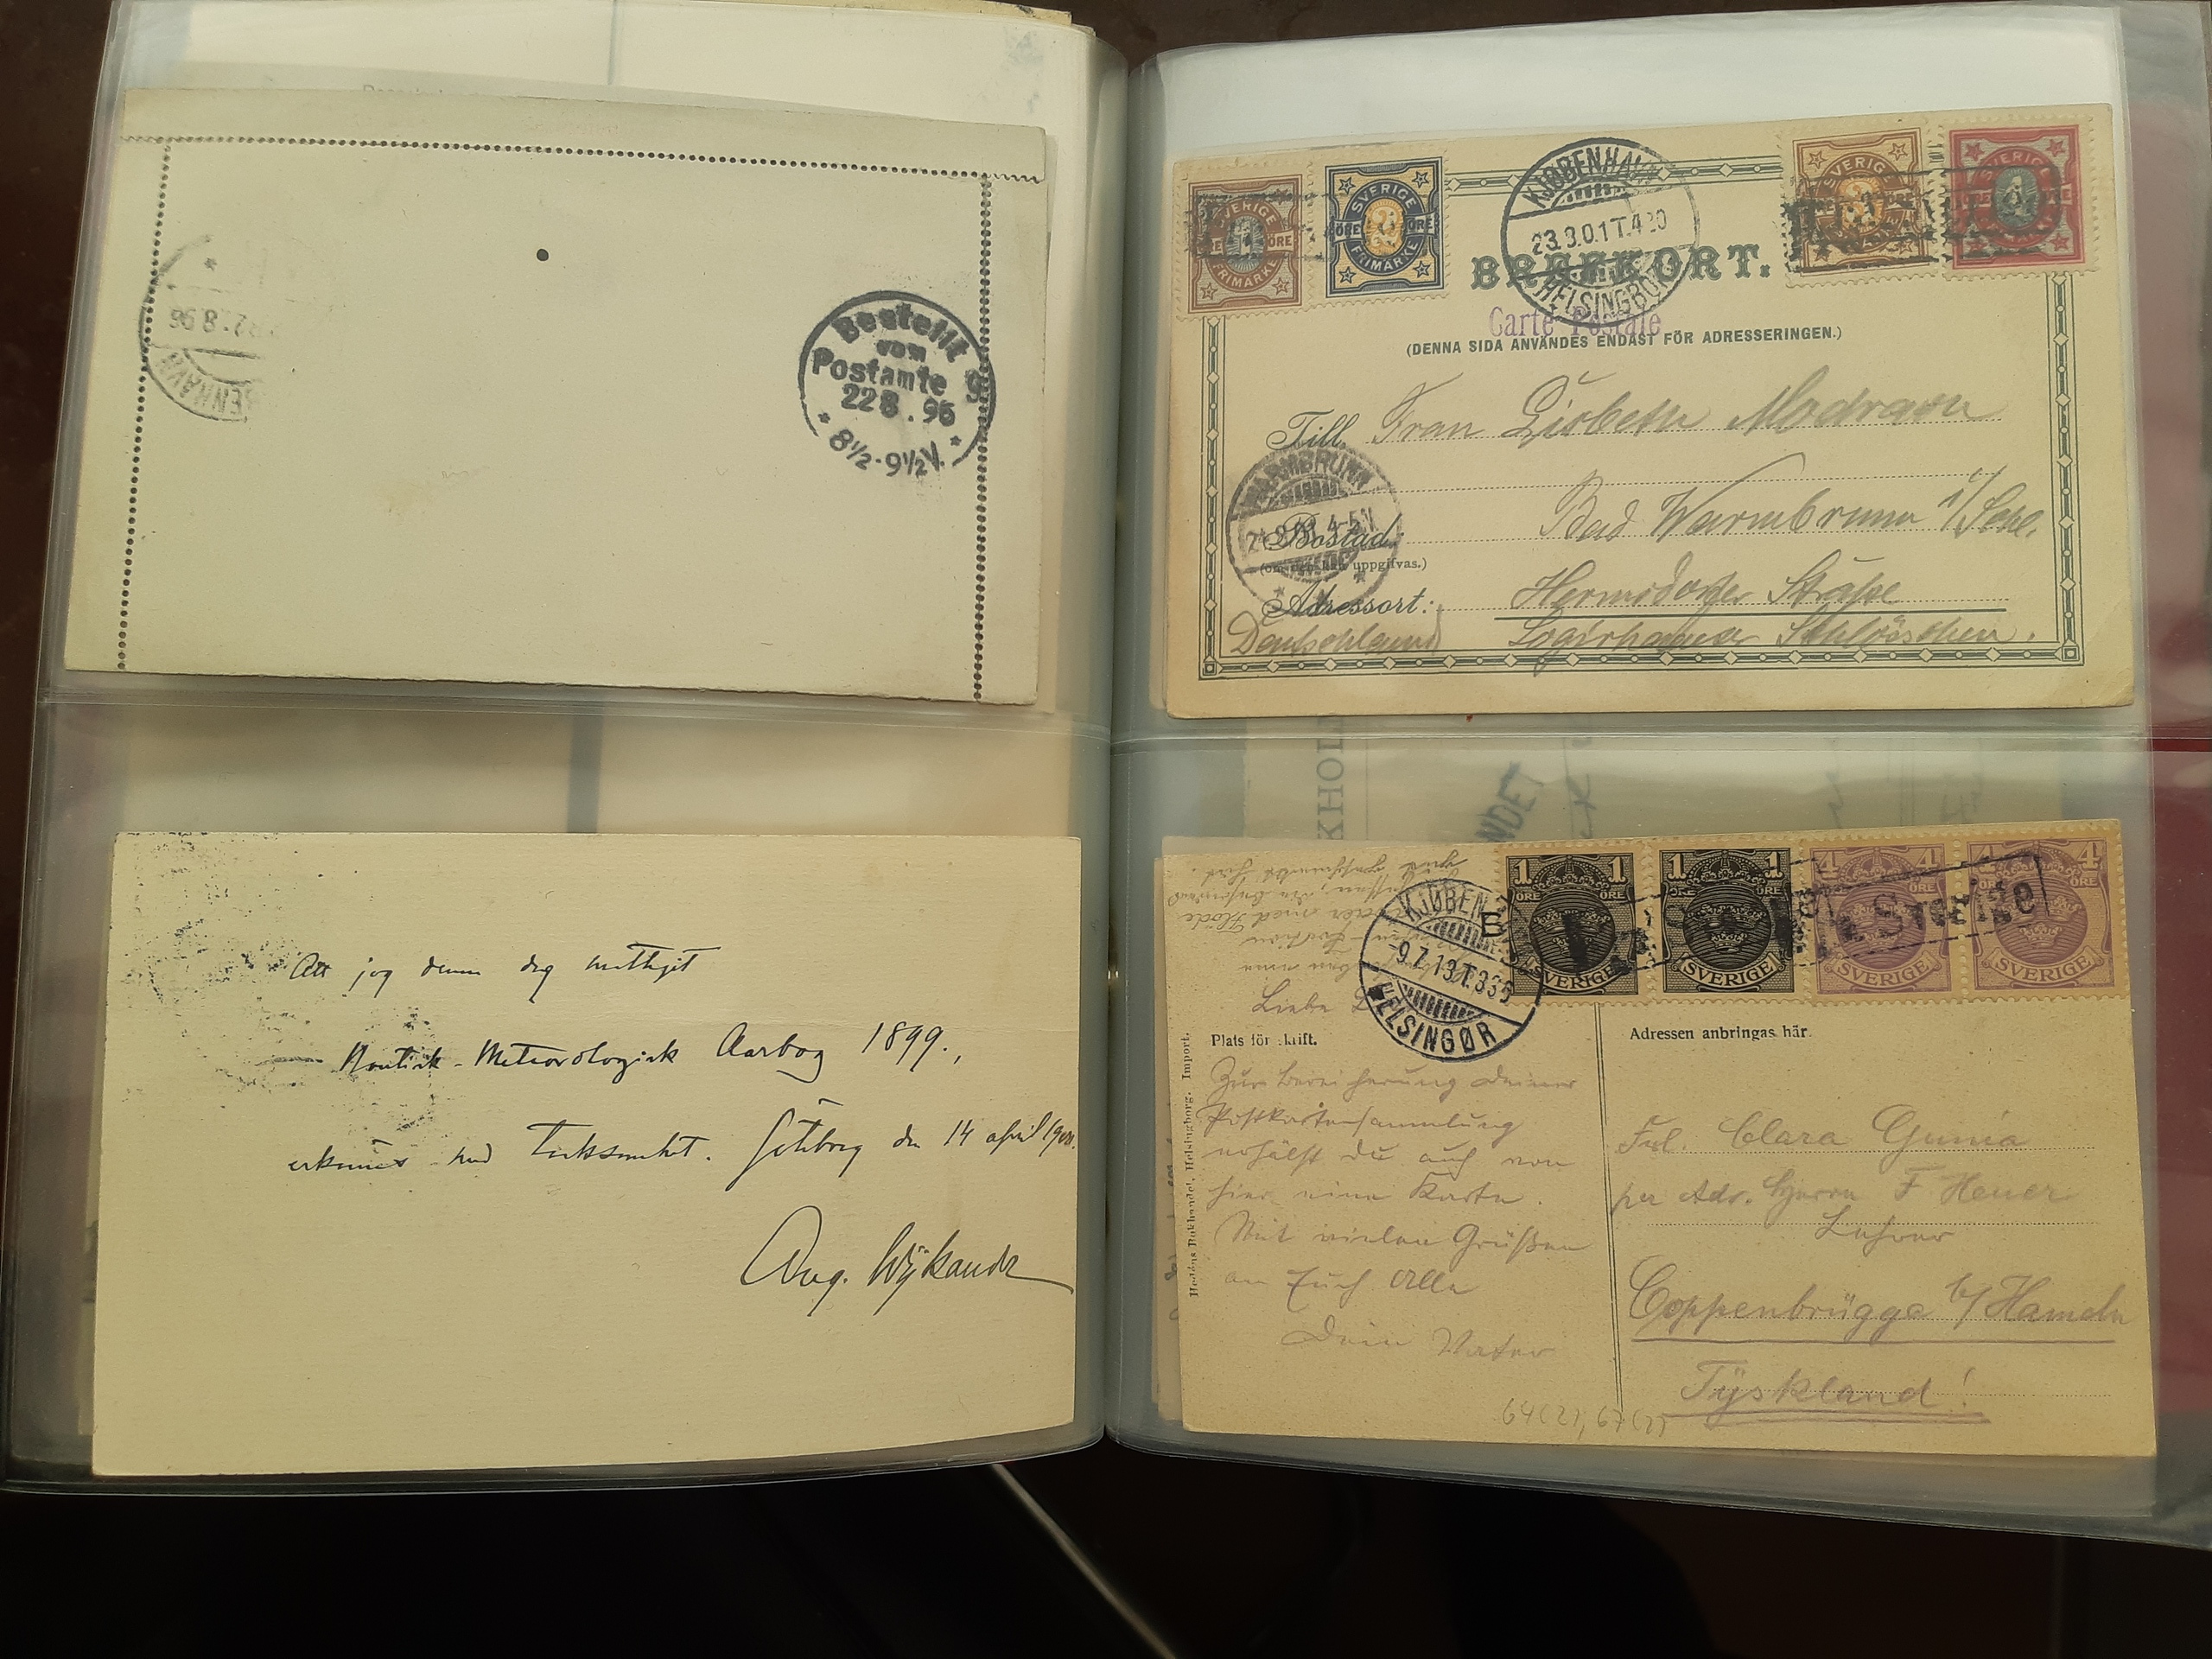 Bestellt
vom
Postamte 9
22 8. 96
* 8½-9½V. *
8 96
ENHAVN
Att jag denna dag mottagit
Nautisk-Meteorologisk Aarbog 1899.,
erkännes med tacksamhet. Göteborg den 14 april 1900.
Aug. Wijkander
SVERIGE
ÖRE
FRIMÄRKE
SVERIGE
ÖRE 2 ÖRE
FRIMÄRKE
KJØBENHAVN
23.9.01 T.4 30
HELSINGBORG
SVERIGE
3
SVERIGE
4
BREFKORT.
Carte Postale
(DENNA SIDA ANVÄNDES ENDAST FÖR ADRESSERINGEN.)
Till Frau Lisbeth Modrawn
WARMBRUNN
4-5N
Bostad: Bad Warmbrunn i/Schl.
uppgifvas.)
Adressort: Hermsdorfer Straße
Deutschland Logirhaus Schlösschen.
KHOL
NDET
1 1
ÖRE
SVERIGE
1 1
ÖRE ÖRE
SVERIGE
4 4
ÖRE
SVERIGE
4 4
ÖRE ÖRE
SVERIGE
Från Sverige
KJØBEN
-9.7.13 T.335
HELSINGØR
B
Liebe
Plats för skrift.
Adressen anbringas här.
Zur Bereicherung Deiner
Postkartensammlung
erhälst Du auch von
hier eine Karte.
Mit vielen Grüßen
an Euch Alle
Dein Vater
Frl. Clara Gunia
per Adr. Herrn F. Heuer
Lehrer
Coppenbrügge b/Hameln
Tyskland!
64(2), 67(2)
Helsingborg. Import.